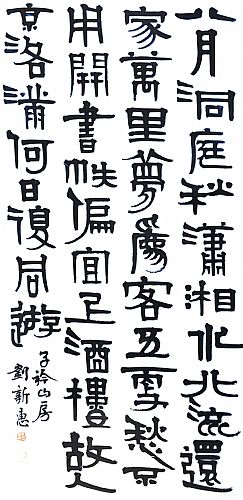 八月洞庭秋瀟湘水北流還
家萬里夢爲客五更愁不
用開書帙偏宜上酒樓故人
京洛滿何日復同遊
子山房
劉新惠